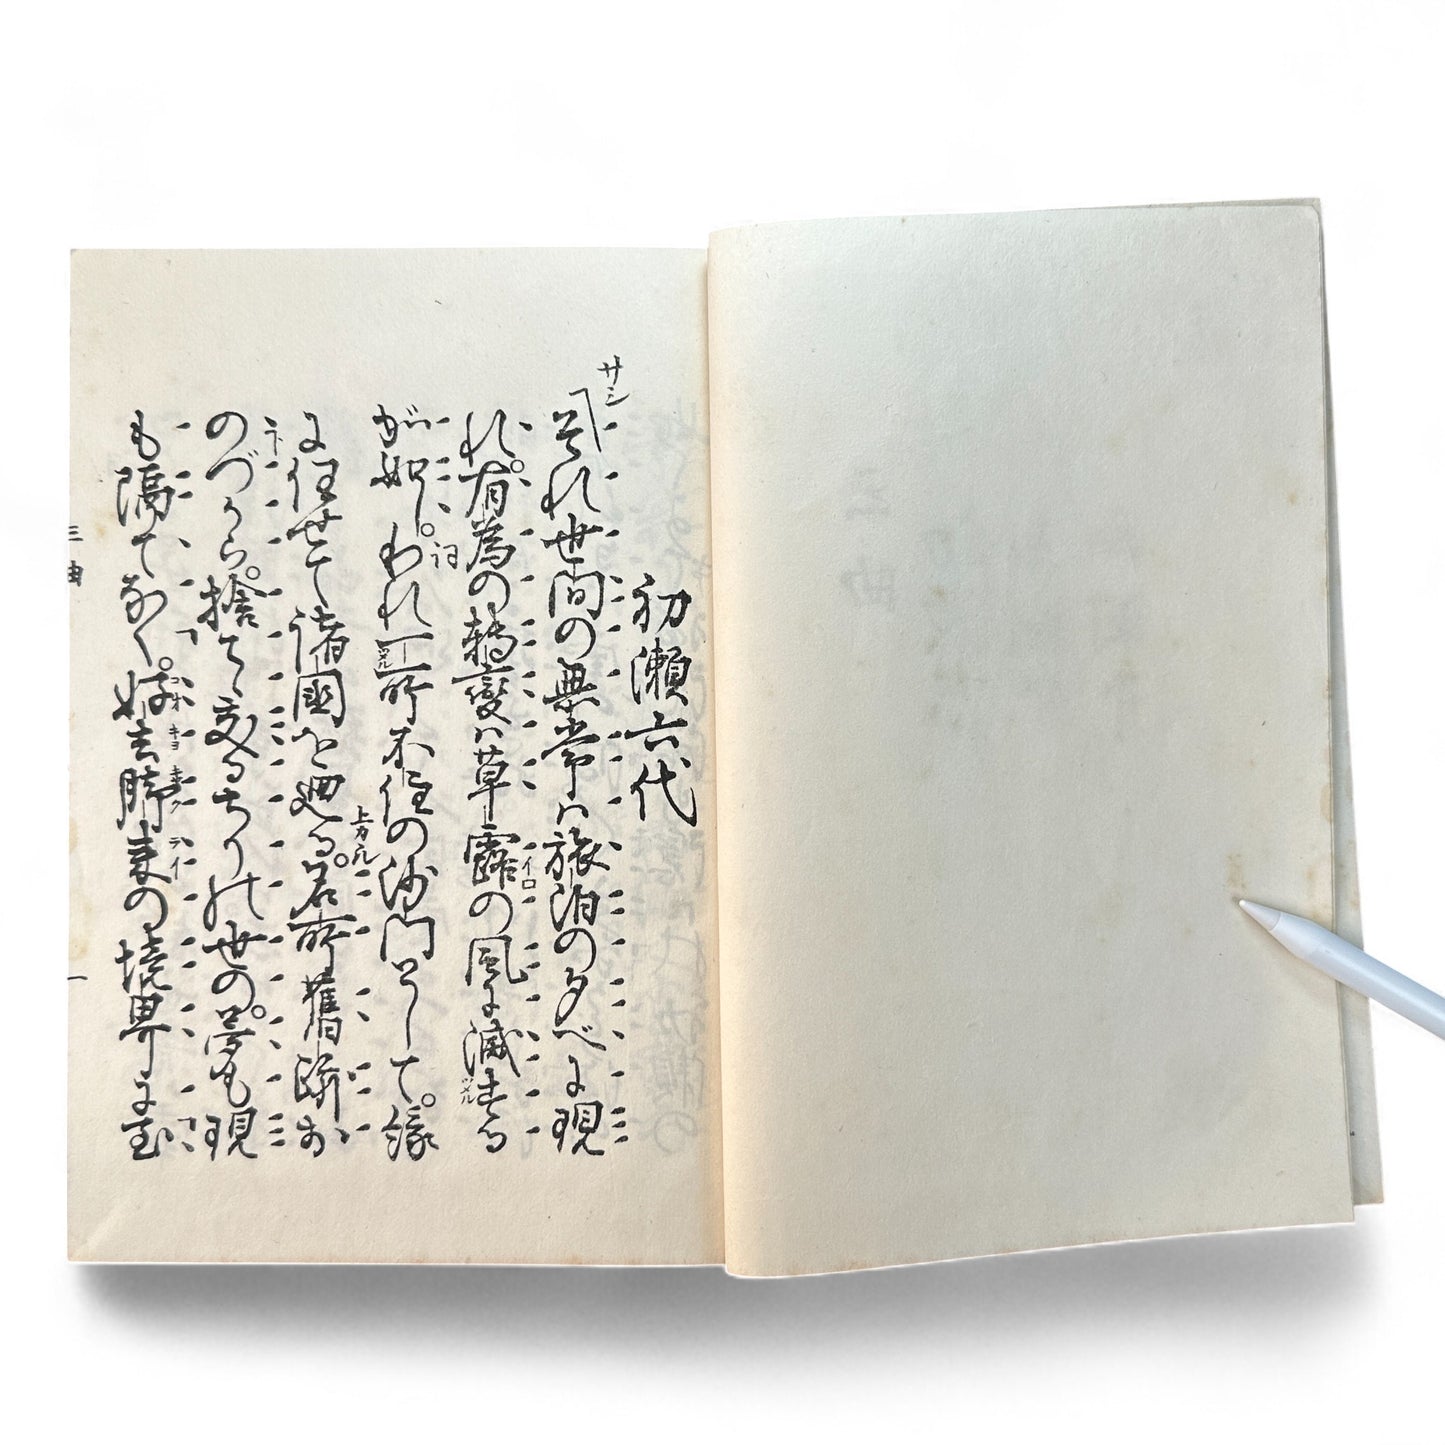 初瀬六代
サシ
それ世間の無常ハ旅泊の夕べに現
れ。有為の轉變ハ草露の風に滅する
イロ
が如し。われ一所不住の沙門として。縁
に任せて諸國を廻る。名所舊跡お
上
のづから。捨てゝ交るちりの世の。夢も現
も隔てなく。去来の境界に至
三曲
一